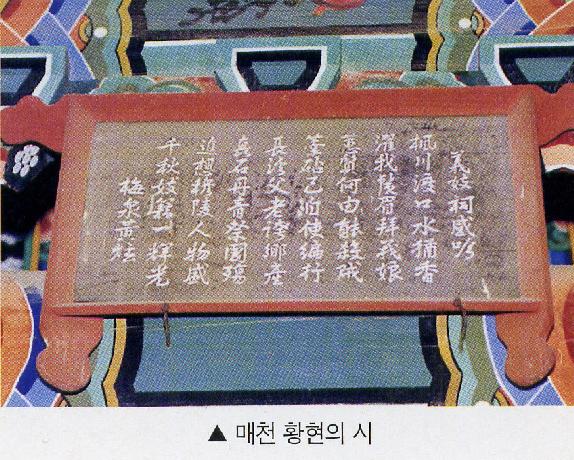 義妓祠感吟
楓川渡口水猶香
濯我須眉拜義娘
蕙質何由能殺賊
藁砧已自使編行
長溪父老誇鄉産
矗石丹青祭國殤
追想穆陵人物盛
千秋妓籍一輝光
梅泉黃玹
▲ 매천 황현의 시